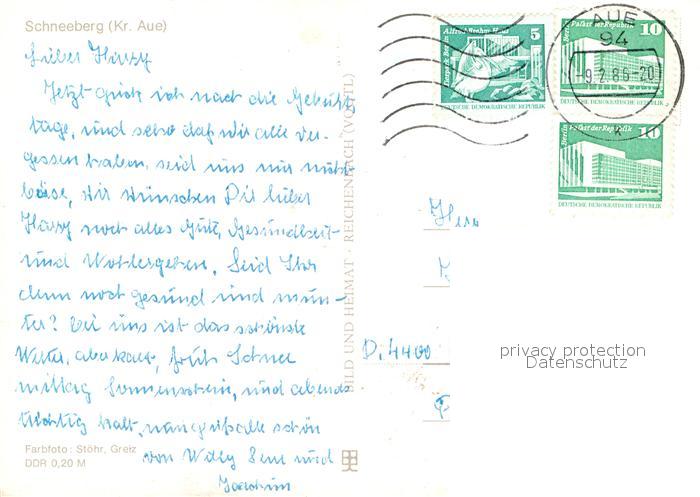 Schneeberg (Kr. Aue)
Lieber Harry
Jetzt guck ich nach die Geburts
tage, und sehe daß wir alle ver-
gessen haben, seid uns nur nicht
böse, Wir wünschen Dir lieber
Harry noch alles Gute, Gesundheit
und Wohlergehen. Seid Ihr
denn noch gesund und mun-
ter? bei uns ist das schönste
Wetter, aber kalt, früh Schnee
mittag Sonnenschein, und abends
tüchtig kalt, nun grüßt alle schön
von Willy und
Joachim
Farbfoto: Stöhr, Greiz
DDR 0,20 M
BILD UND HEIMAT · REICHENBACH (VOGTL)
Tierpark Berlin Alfred-Brehm-Haus 5
DEUTSCHE DEMOKRATISCHE REPUBLIK
Berlin Palast der Republik 10
DEUTSCHE DEMOKRATISCHE REPUBLIK
Berlin Palast der Republik 10
DEUTSCHE DEMOKRATISCHE REPUBLIK
AUE
94
-20
Herr
D. 4400
privacy protection
Datenschutz